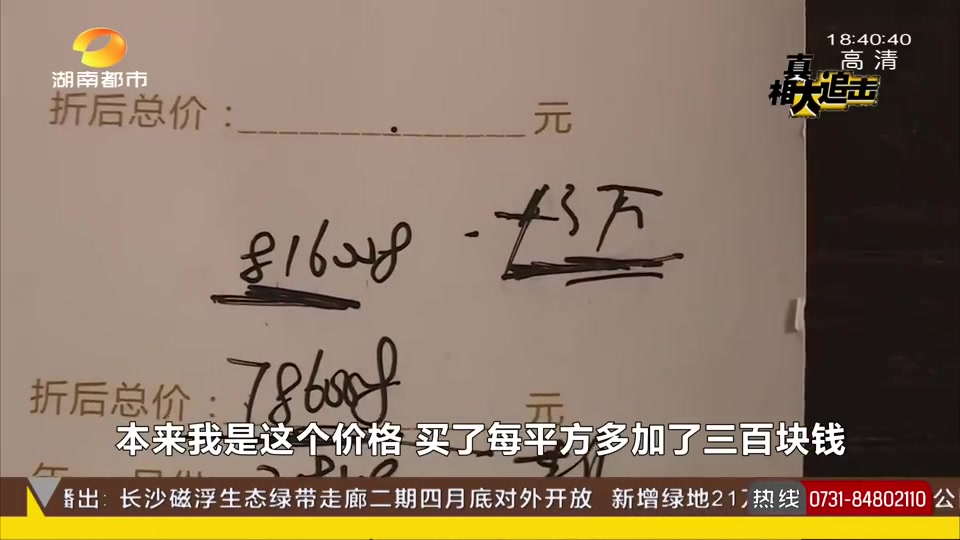 湖南都市
18:40:40
高清
真相大追击
折后总价：
元
816008
+3万
786008
折后总价：
元
本来我是这个价格 买了每平方多加了三百块钱
播出：长沙磁浮生态绿带走廊二期四月底对外开放 新增绿地21
热线 0731-84802110